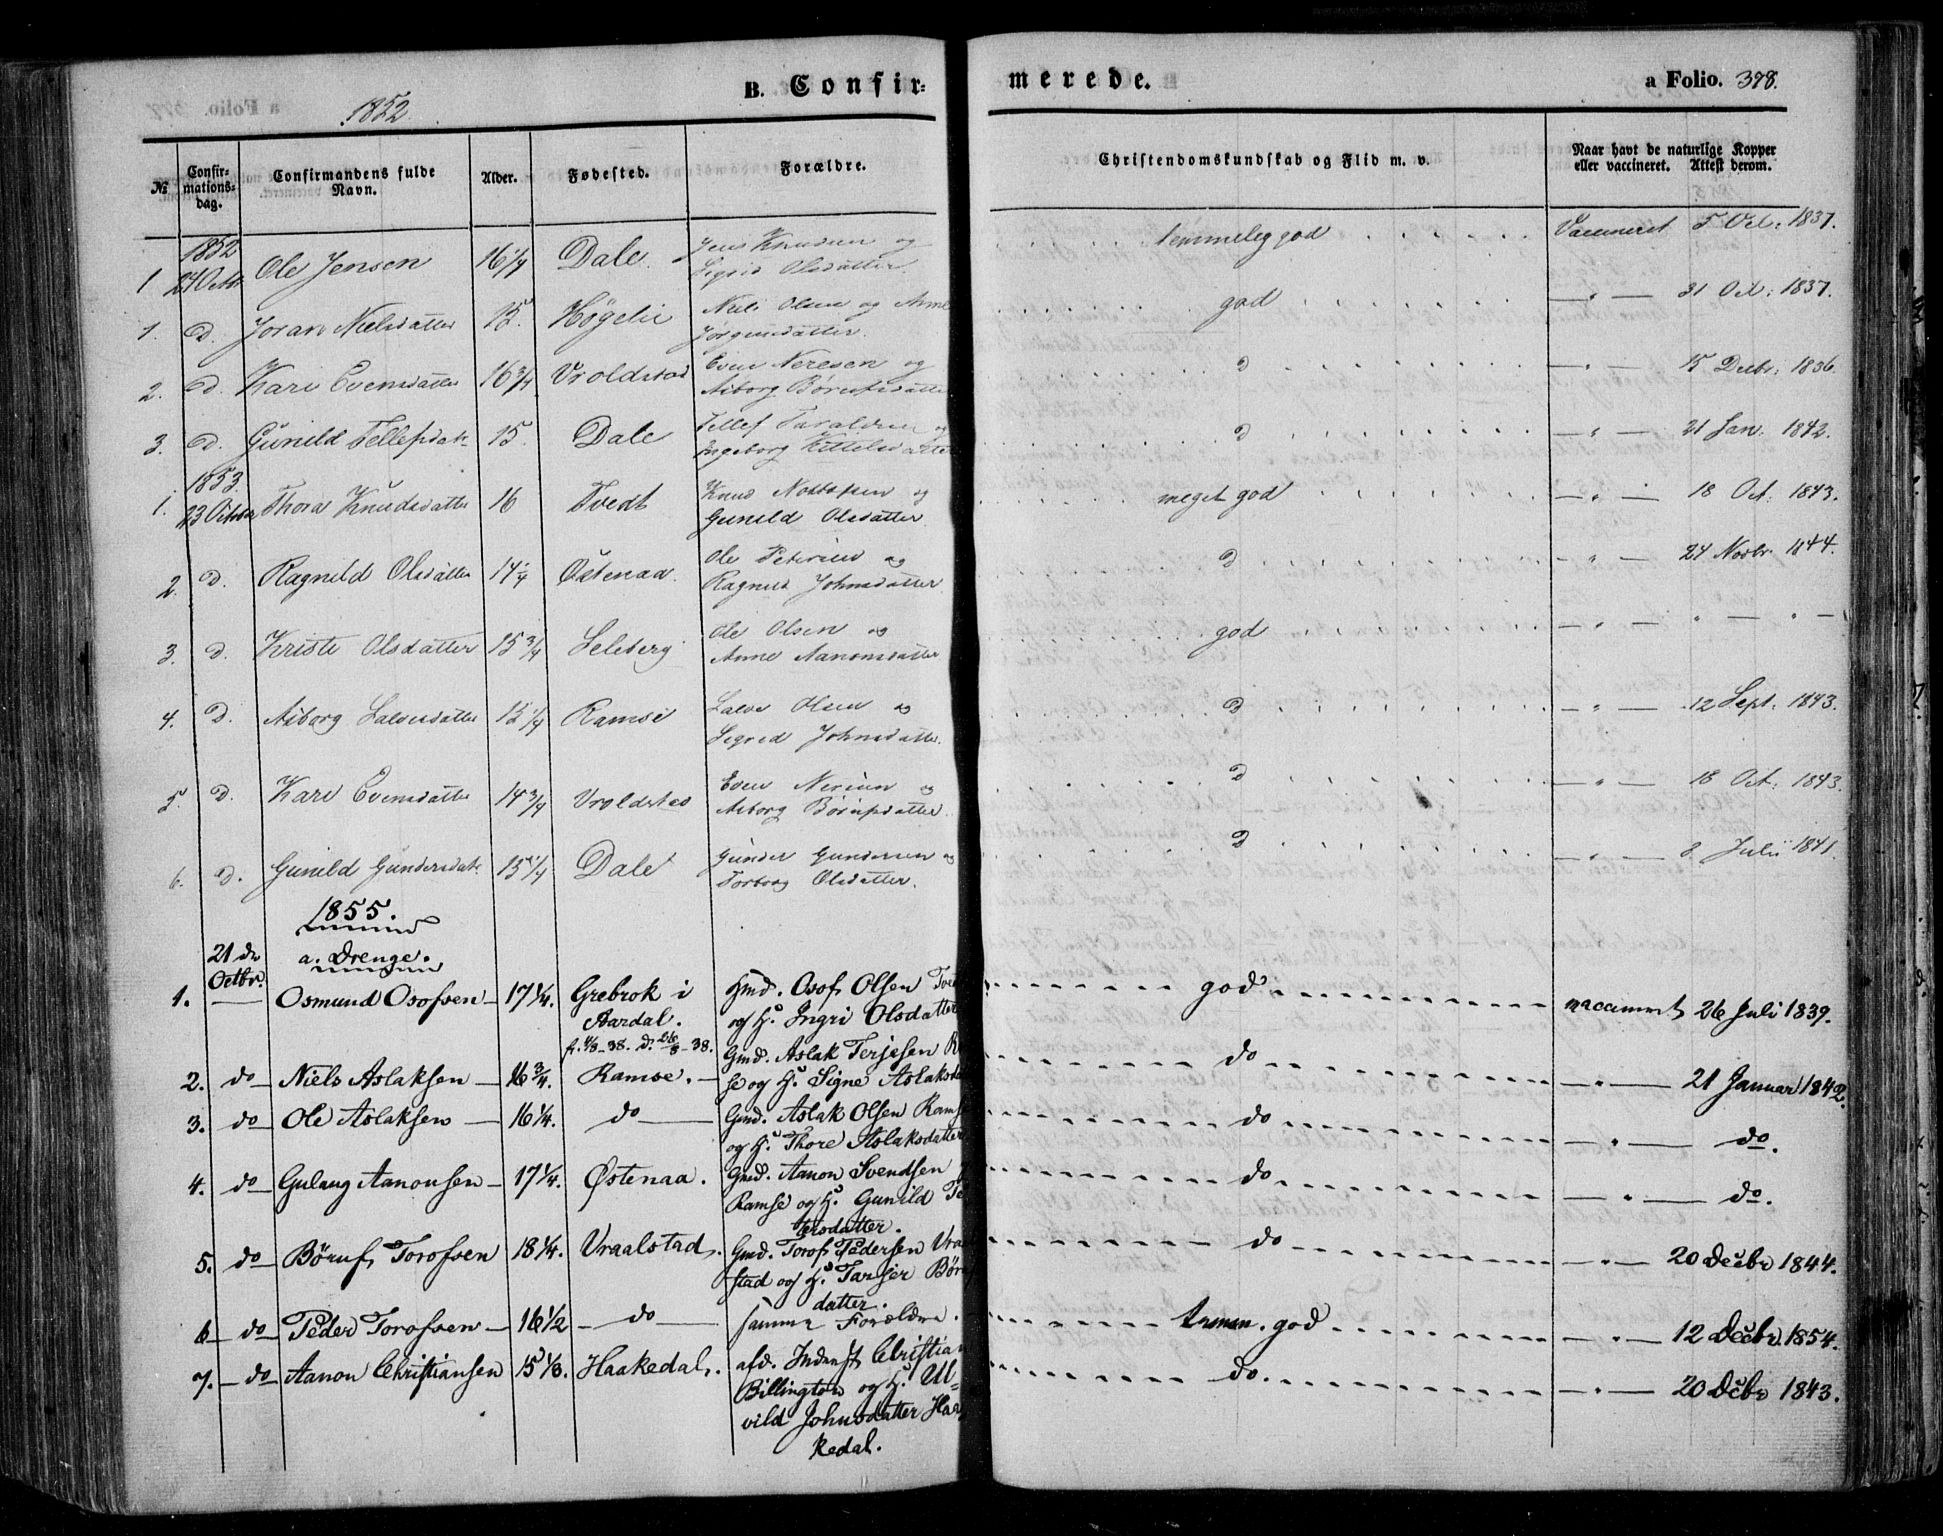 1852
B. Confir=
merede.
a Folio. 378.
№
Confir-
mations-
dag.
Confirmandens fulde
Navn.
Alder.
Fødested.
Forældre.
Christendomskundskab og Flid m. v.
Naar havt de naturlige Kopper
eller vaccineret. Attest derom.
1852
1 24 Octbr Ole Jensen 16 1/4 Dale. Jens Knudsen og
Sigrid Olsdatter. temmelig god Vaccineret 5 Oct: 1837.
1. D. Joran Nielsdatter 15. Høgelie Niels Olsen og Anne
Jørgensdatter. god — " — 31 Oct: 1837.
2. D. Kari Evensdatter 16 3/4 Vroldstad Even Neresen og
Asborg Børufsdatter D — " — 15 Decbr: 1836.
3. D. Gunild Tellefsdat. 15. Dale Tellef Taraldsen og
Ingeborg Kittelsdatter D — " — 21 Jan. 1842.
1853.
1. 23 October Thora Knudsdatter 16 Tvedt Knud og
Gunild Olsdatter. meget god — " — 18 Oct: 1843.
2. D. Ragnild Olsdatter 14 1/4 Østenaa. Ole Petersen og
Ragnild Johnsdatter. D — " — 24 Novbr. 1844.
3. D. Kristi Olsdatter 15 3/4 Leleberg Ole Olsen og
Anne Aanonsdatter god — " — " — " —
4. D. Asborg Salvesdatter 15 1/4 Ramse Salve Olsen og
Sigrid Johnsdatter. D — " — 12 Sept: 1843.
5 D. Kari Evensdatter 14 3/4 Vroldstad Even Nersen og
Asborg Børufsdatter. D — " — 18 Oct: 1843.
6. D. Gunild Gundersdat. 15 1/4 Dale Gunder Gundersen og
Torborg Olsdatter. D — " — 8 Julii 1841.
1855.
21 de
Octbr. a. Drenge.
1. — Osmund Osofsen — 17 1/4. Grebrok i Gmd. Osof Olsen
Aardal. og H. Ingri Olsdatter god vaccineret 26 Juli 1839.
f. 1/8-38. d. 26/8-38. Gmd. Aslak Terjesen
2. do — Niels Aslaksen — 16 3/4. Ramse. — se og H. Signe do — " — 21 Januar 1842.
3. do — Ole Aslaksen — 16 1/4. do — Gmd. Aslak Olsen Ramse
og H. Thore Aslaksdatter do — " — do.
4. do — Gulaug Aanonsen — 17 1/4. Østenaa. Gmd. Aanon Svendsen
Ramse og H. Gunild
tersdatter. do — " — do.
5. do — Børuf Torofsen 18 1/4. Vraalstad. Gmd. Torof Pedersen Vraa
stad og H. Tarjer Bør
datter. do — " — 20 Decbr 1844.
6 — do — Peder Torofsen — 16 1/2 — do — samme Forældre. temm. god — " — 12 Decbr 1854.
7. — do — Aanon Christiansen 15 1/8. Haakedal. afd. Inderst Christian
Billington og H. Ul=
vild Johnsdatter Haa
kedal. do. — " — 20 Debr 1843.